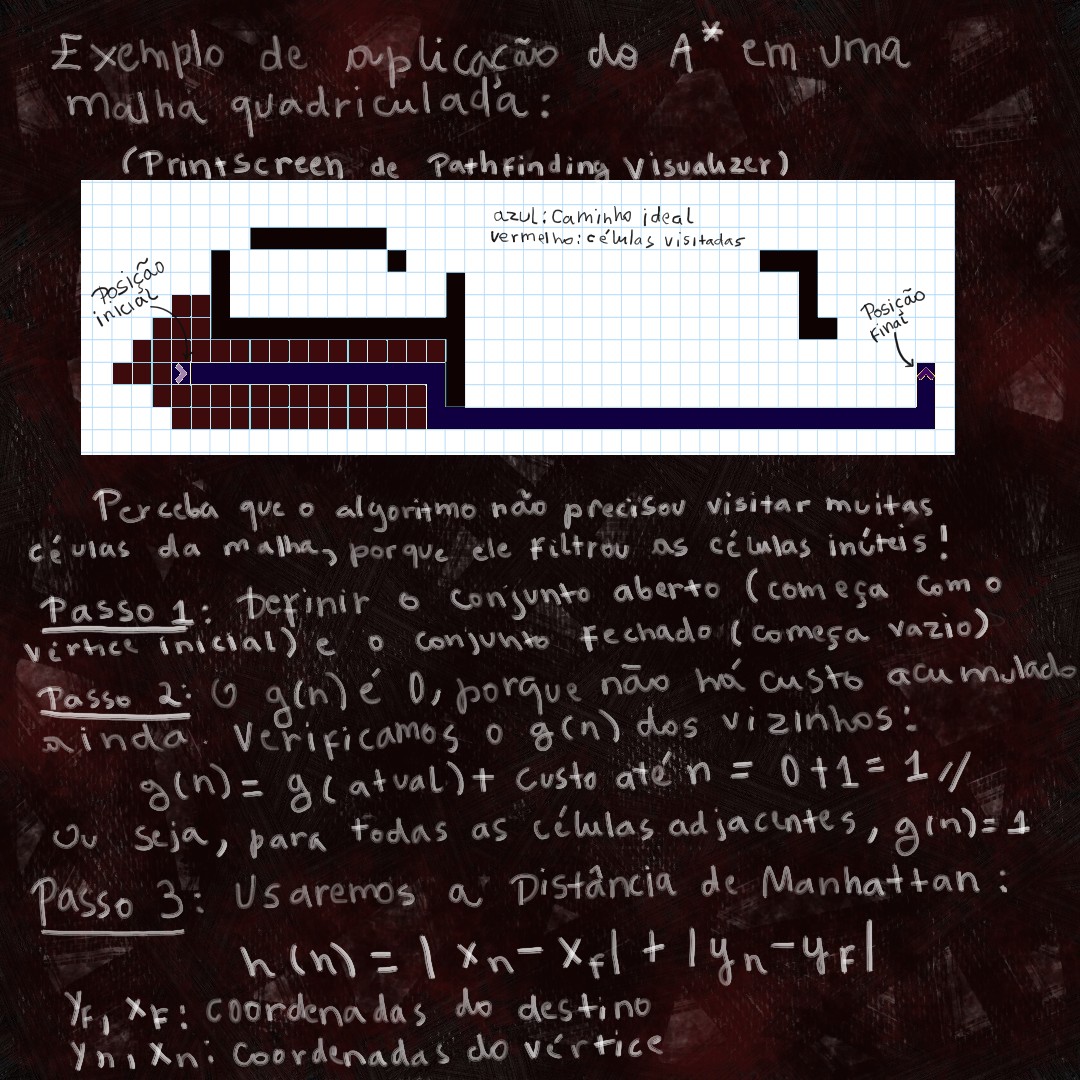 Exemplo de aplicação do A* em uma
malha quadriculada:
(Printscreen de Pathfinding Visualizer)
azul: Caminho ideal
vermelho: células visitadas
Posição
inicial
Posição
Final
Perceba que o algoritmo não precisou visitar muitas
células da malha, porque ele filtrou as células inúteis!
Passo 1: Definir o conjunto aberto (começa com o
vértice inicial) e o conjunto fechado (começa vazio)
Passo 2: O g(n) é 0, porque não há custo acumulado
ainda. Verificamos o g(n) dos vizinhos:
g(n) = g(atual) + custo até n = 0+1 = 1 //
Ou seja, para todas as células adjacentes, g(n)=1
Passo 3: Usaremos a Distância de Manhattan:
h(n) = |xn - xf| + |yn - yF|
yF, xF: coordenadas do destino
yn, xn: coordenadas do vértice